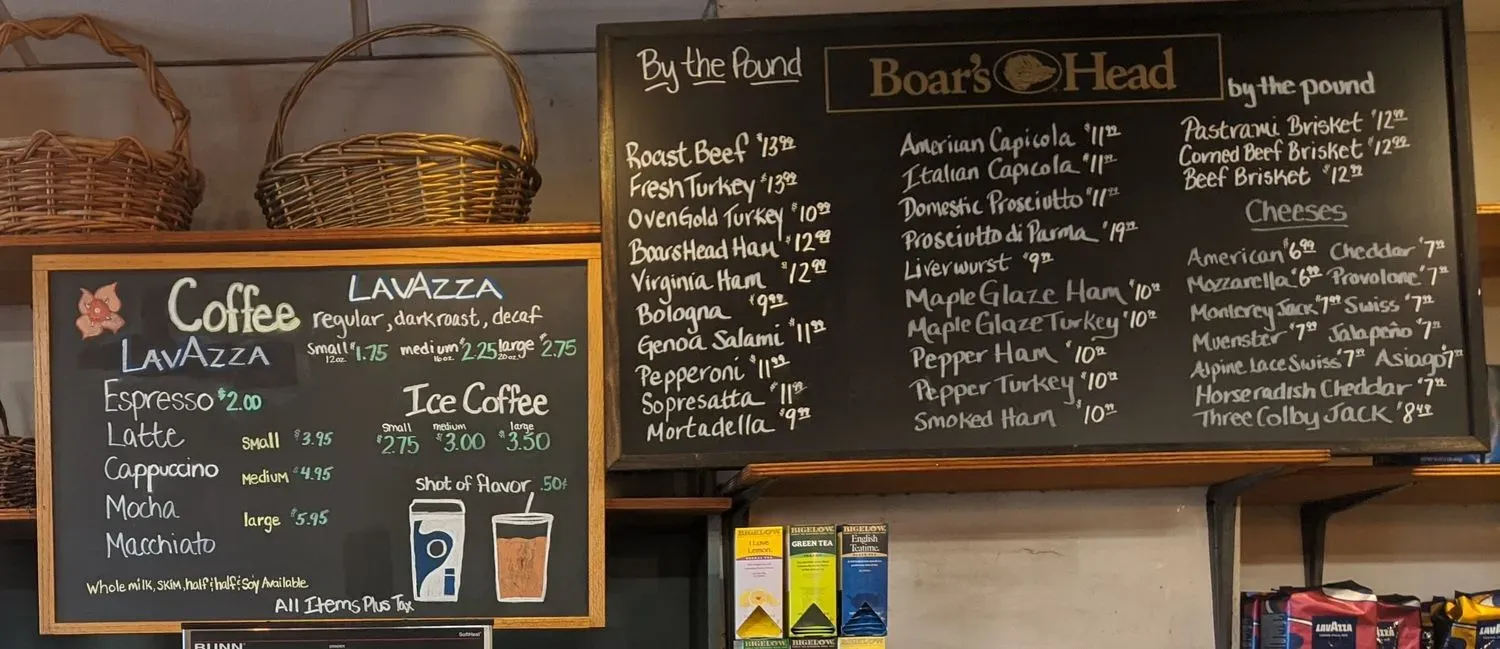 Coffee
LAVAZZA
Espresso $2.00
Latte
Cappuccino
Mocha
Macchiato
Small $3.95
Medium $4.95
large $5.95
LAVAZZA
regular, dark roast, decaf
Small $1.75 medium $2.25 large $2.75
12oz. 16oz. 20oz.
Ice Coffee
Small medium large
$2.75 $3.00 $3.50
Shot of flavor .50¢
Whole milk, Skim, half & half & Soy Available
All Items Plus Tax
BUNN
SoftHeat
By the Pound
Boar's Head
by the pound
Roast Beef $13.99
Fresh Turkey $13.99
OvenGold Turkey $10.99
Boars Head Ham $12.99
Virginia Ham $12.99
Bologna $9.99
Genoa Salami $11.99
Pepperoni $11.99
Sopresatta $11.99
Mortadella $9.99
American Capicola $11.99
Italian Capicola $11.99
Domestic Prosciutto $11.99
Prosciutto di Parma $19.99
Liverwurst $9.99
Maple Glaze Ham $10.99
Maple Glaze Turkey $10.99
Pepper Ham $10.99
Pepper Turkey $10.99
Smoked Ham $10.99
Pastrami Brisket $12.99
Corned Beef Brisket $12.99
Beef Brisket $12.99
Cheeses
American $6.99 Cheddar $7.99
Mozzarella $6.99 Provolone $7.99
Monterey Jack $7.99 Swiss $7.99
Muenster $7.99 Jalapeño $7.99
Alpine Lace Swiss $7.99 Asiago $7.99
Horseradish Cheddar $7.99
Three Colby Jack $8.49
BIGELOW
I Love
Lemon
BIGELOW
GREEN TEA
BIGELOW
English
Teatime
BIGELOW
BIGELOW
BIGELOW
LAVAZZA